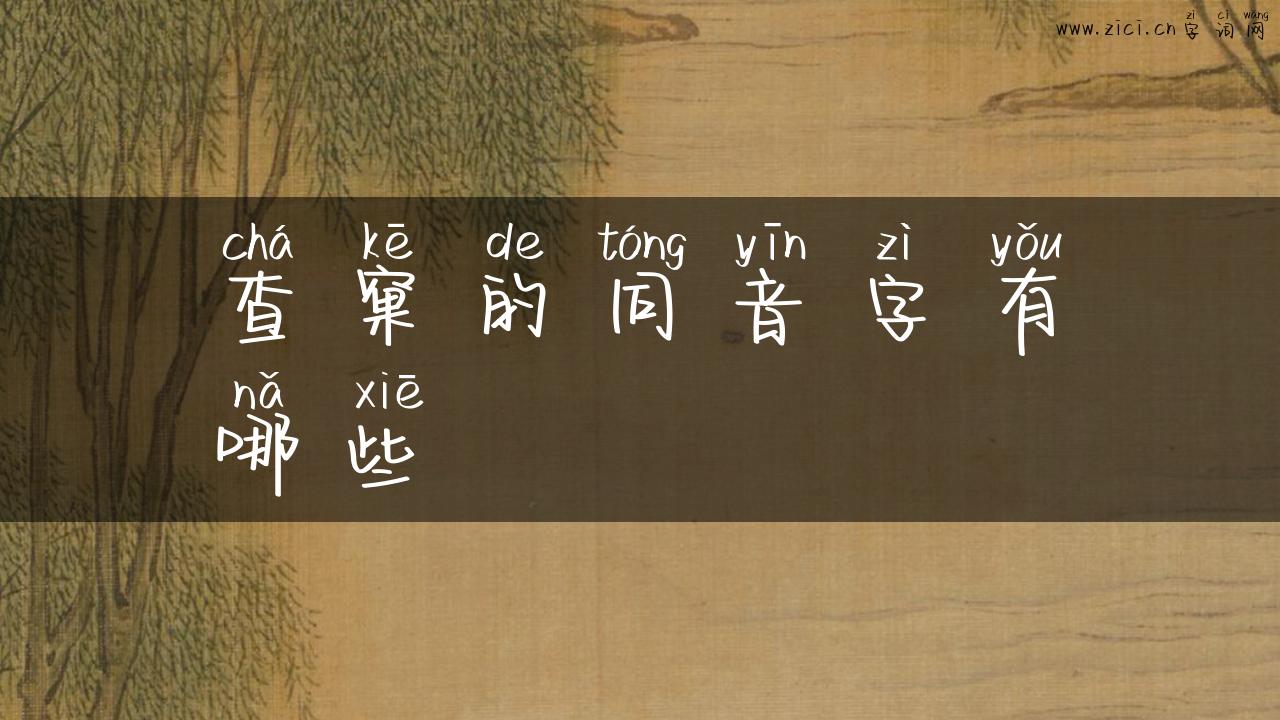 zì cí wǎng
www.zici.cn 字词网
chá kē de tóng yīn zì yǒu
查窠的同音字有
nǎ xiē
哪些